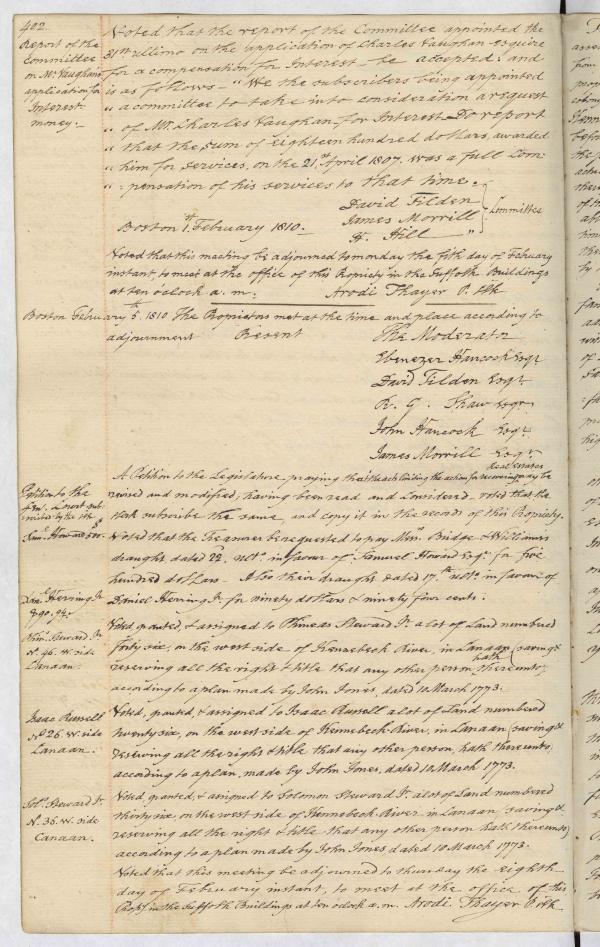 402
Report of the
Committee
on Mr. Vaughan's
application for
Interest
money.
Voted that the report of the Committee appointed the
31st ultimo on the application of Charles Vaughan Esquire
for a compensation for Interest be accepted: and
is as follows — "We the subscribers being appointed
" a committee to take into consideration a request
" of Mr. Charles Vaughan, for Interest Do report
" that the sum of eighteen hundred dollars, awarded
" him for services, on the 21st April 1807, was a full Com-
" pensation of his services to that time.
David Tilden
James Morrill
H. Hill
Committee
Boston 1st February 1810.
Voted that this meeting be adjourned to monday the fifth day of February
instant, to meet at the office of this Propriety in the Suffolk Buildings
at ten o'clock a. m. Arodi Thayer P. Clk
Boston February 5th 1810 The Proprietors met at the time and place according to
adjournment Present The Moderator
Ebenezer Hancock Esqr
David Tilden Esqr
R. G. Shaw Esqr
John Hancock Esqr
James Morrill Esqr
Petition to the
A Petition to the Legislature, praying that the act limiting the action for recovering real estates may be
revised and modified, having been read and Considered. Voted that the
Clerk subscribe the same, and copy it in the records of this Propriety.
Saml Howard 500.
Voted that the Treasurer be requested to pay Messrs Bridge & Williams
draught dated 22. ulto. in favour of Samuel Howard Esqr for five
hundred dollars — Also their draught dated 17th ulto. in favour of
Daniel Herring Jr. for ninety dollars & ninety four cents.
Danl Herring Jr
$90.94.
Phins Steward Jr
No. 46. W. side
Canaan.
Voted, granted, & assigned to Phineas Steward Jr. a lot of Land numbered
forty six, on the west side of Kennebeck River, in Canaan (saving &
reserving all the right & title that any other person hath thereunto)
according to a plan made by John Jones, dated 10 March 1773.
Isaac Russell
No 26 W. side
Canaan.
Voted, granted, & assigned to Isaac Russell a lot of Land numbered
twenty six, on the west side of Kennebeck River, in Canaan (saving &
reserving all the right & title that any other person, hath thereunto)
according to a plan, made by John Jones, dated 10 March 1773.
Solo. Steward Jr
No. 36. W. side
Canaan.
Voted, granted, & assigned to Solomon Steward Jr a lot of Land numbered
thirty six, on the west side of Kennebeck River, in Canaan (saving &
reserving all the right & title that any other person hath thereunto)
according to a plan made by John Jones dated 10 March 1773.
Voted that this meeting be adjourned to thursday the eighth
day of February instant, to meet at the office of this
Propy in the Suffolk Buildings at ten o'clock a. m. Arodi Thayer P. Clk